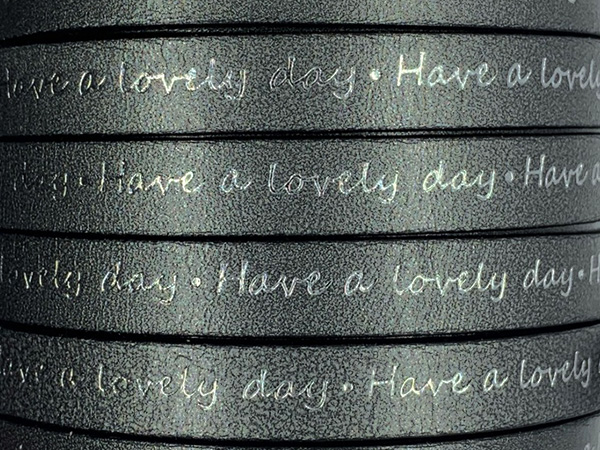 Have a lovely day • Have a lovely
day • Have a lovely day • Have a
lovely day • Have a lovely day • H
Have a lovely day • Have a lovely